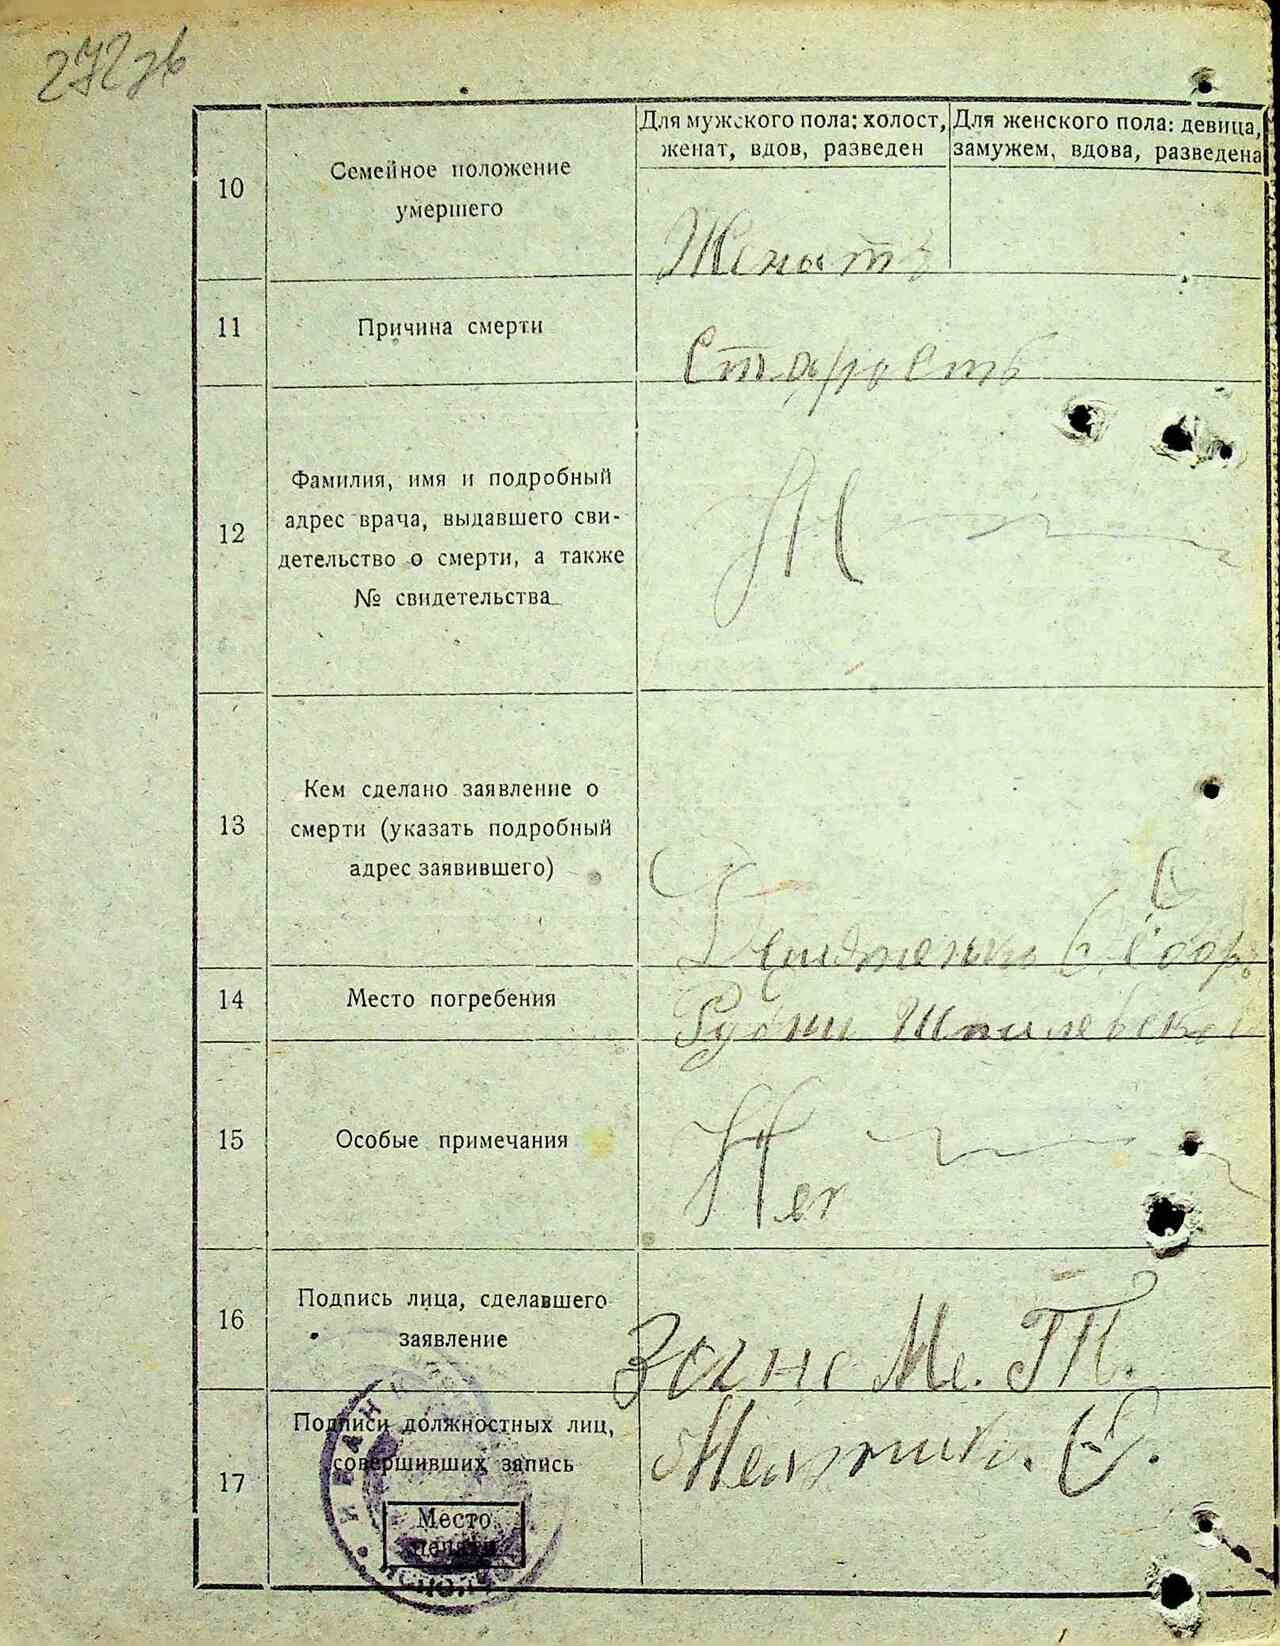 272зв
Для мужского пола: холост,
женат, вдов, разведен
Для женского пола: девица,
замужем, вдова, разведена
10
Семейное положение
умершего
Женатъ
11
Причина смерти
Старость
12
Фамилия, имя и подробный
адрес врача, выдавшего сви-
детельство о смерти, а также
№ свидетельства
13
Кем сделано заявление о
смерти (указать подробный
адрес заявившего)
14
Место погребения
Рудни Шпилевской
15
Особые примечания
Нет
16
Подпись лица, сделавшего
заявление
17
Подписи должностных лиц,
совершивших запись
Место
печати